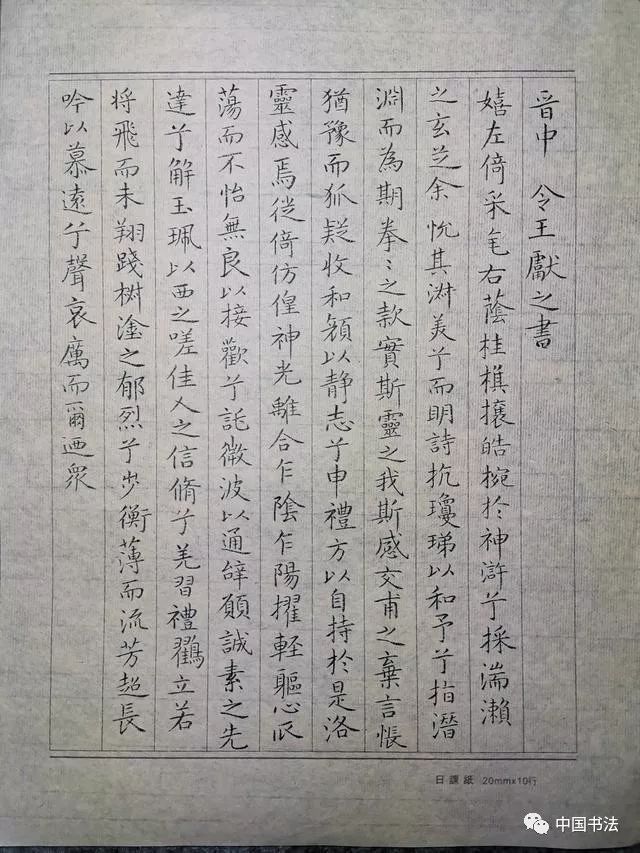 晋中 令王獻之書
嬉左倚采旄右蔭桂棋攘皓椀於神滸兮採湍瀨
之玄芝余悅其淑美兮而明詩抗瓊珶以和予兮指潛
淵而為期拳〻之款實斯靈之我斯感交甫之棄言悵
猶豫而狐疑收和顏以静志兮申禮方以自持於是洛
靈感焉徙倚仿偟神光離合乍陰乍陽擢輊軀心
蕩而不怡無良以接歡兮託微波以通辝願誠素之先
達兮解玉珮以西之嗟佳人之信脩兮羌習禮立若
将飛而未翔踐椒塗之郁烈兮步衡薄而流芳超長
吟以慕遠兮聲哀厲而爾迺眾
日課紙 20mm×10行
中国书法